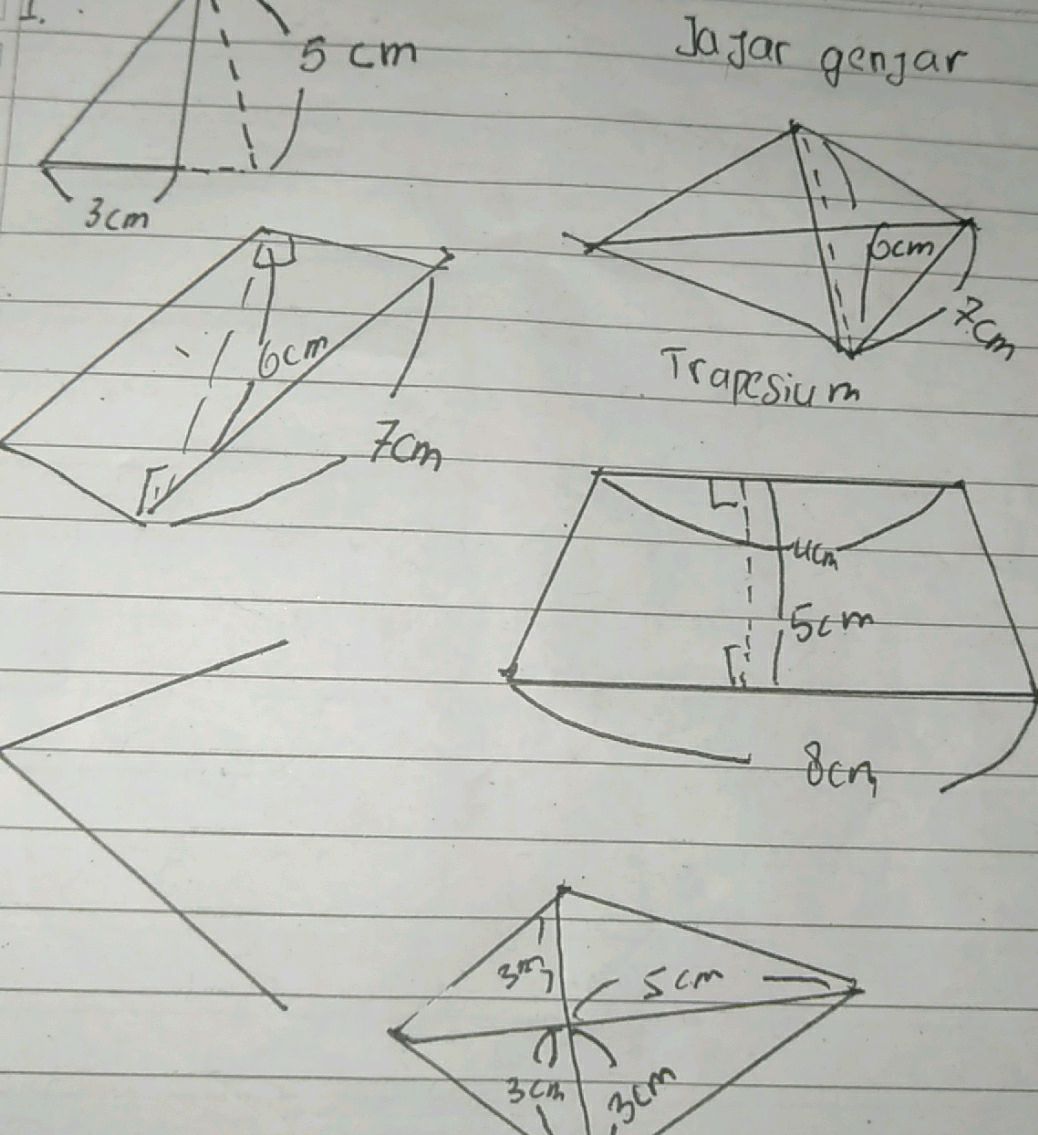 1.
5 cm
3cm
Jajar genjar
6cm
7cm
6cm
7cm
Trapesium
4cm
5cm
8cm
5cm
3cm
3cm